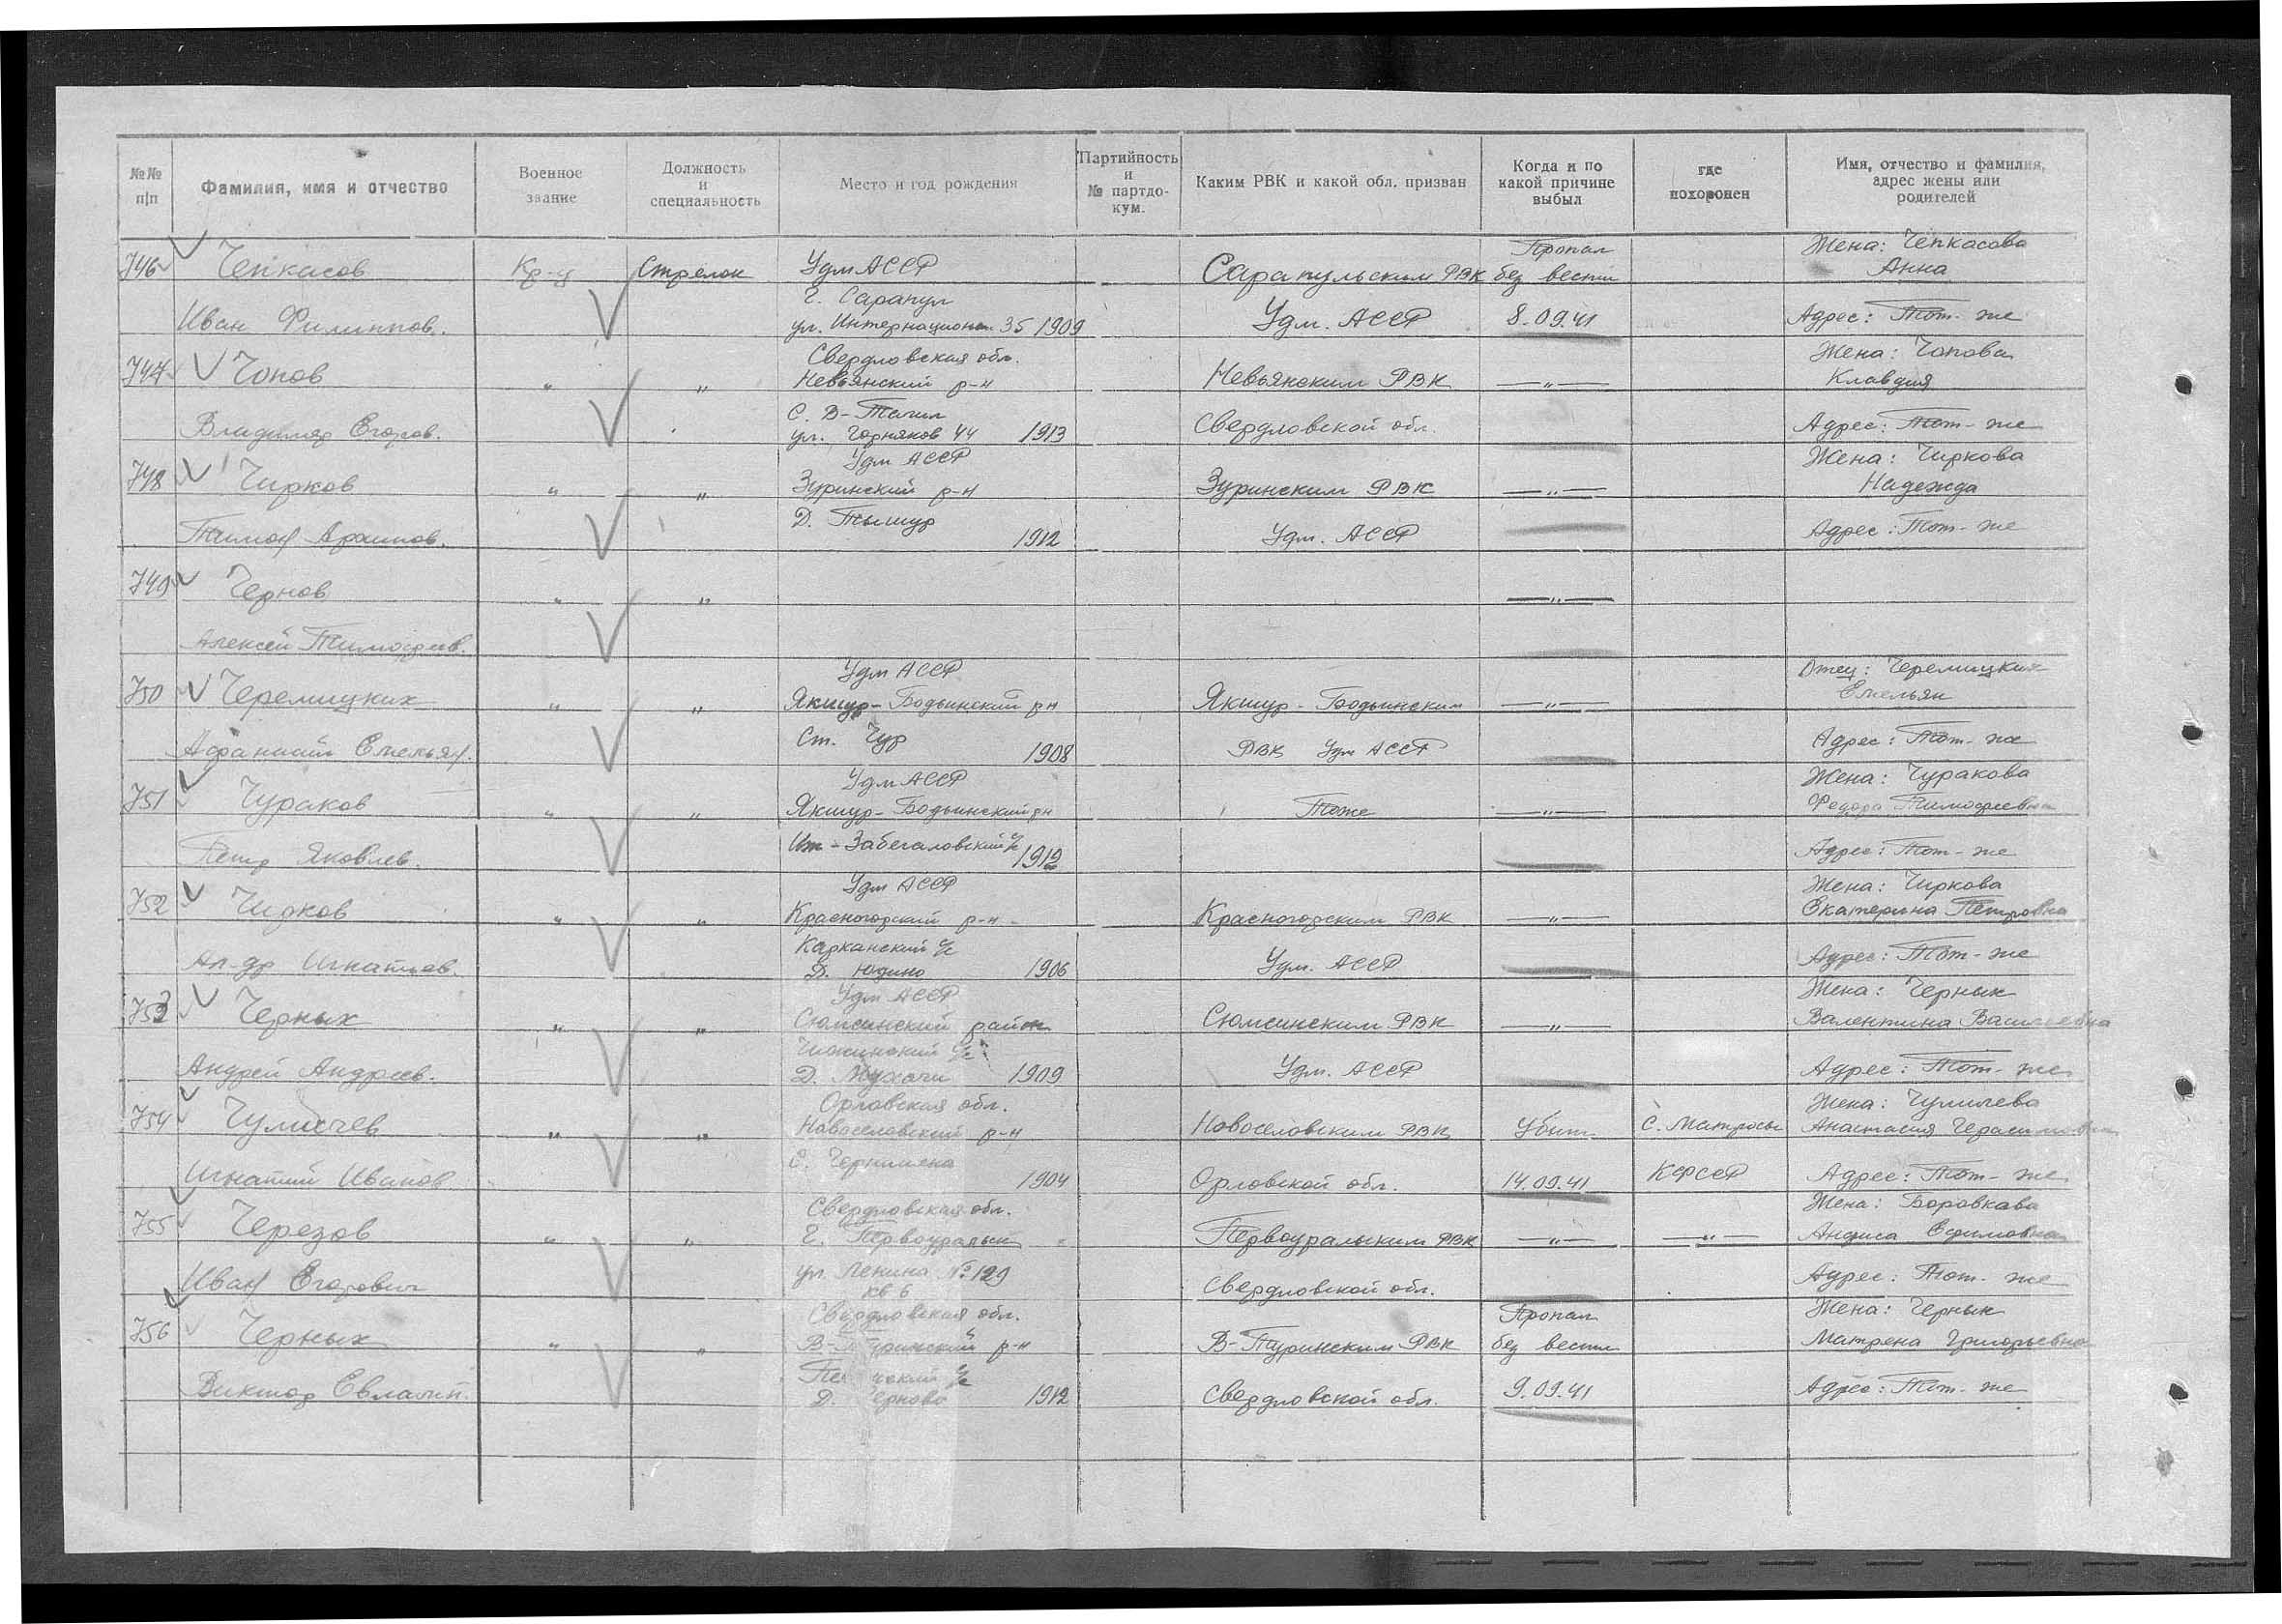 №№ п|п
Фамилия, имя и отчество
Военное звание
Должность и специальность
Место и год рождения
Партийность и № партдо-кум.
Каким РВК и какой обл. призван
Когда и по какой причине выбыл
где похоронен
Имя, отчество и фамилия, адрес жены или родителей
746 Чепкасов Кр-ц Стрелок УдмАССР Сарапульским РВК Пропал без вести Жена: Чепкасова Анна
Иван Филиппов. г. Сарапул ул. Интернацион. 35 1909 Удм. АССР 8.09.41 Адрес: Тот-же
747 Чопов " " Свердловская обл. Невьянский р-н Невьянским РВК —"— Жена: Чопова Клавдия
Владимир Егоров. С. В-Тагил ул. Горняков 44 1913 Свердловской обл. Адрес: Тот-же
748 Чирков " " Удм АССР Зуринский р-н Зуринским РВК —"— Жена: Чиркова Надежда
Д. Тышур 1912 Удм. АССР Адрес: Тот-же
749 Чернов " " —"—
Алексей Тимофеев.
750 Черемицких " " Удм АССР Якшур-Бодьинский р-н Якшур-Бодьинским —"— Отец: Черемицких Емельян
Афанасий Емельян. Ст. Чур 1908 РВК Удм АССР Адрес: Тот-же
751 Чураков " " Удм АССР Якшур-Бодьинский р-н Тоже —"— Жена: Чуракова Федора Тимофеевна
Петр Яковлев. Забегаловский с/с 1912 Адрес: Тот-же
752 Чирков " " Удм АССР Красногорский р-н Красногорским РВК —"— Жена: Чиркова Екатерина Петровна
Ал-др Игнатьев. Карканский с/с Д. Юдино 1906 Удм. АССР Адрес: Тот-же
753 Черных " " Удм АССР Сюмсинский район Сюмсинским РВК —"— Жена: Черных Валентина Васильевна
Андрей Андреев. Д. 1909 Удм. АССР Адрес: Тот-же
754 " " Орловская обл. Новоселовский р-н Новоселовским РВК Убит С. Матросы Жена: Чумичева Анастасия Герасимовна
Игнатий Иванов С. 1904 Орловской обл. 14.09.41 КФССР Адрес: Тот-же
755 Черезов " " Свердловская обл. г. Первоуральск Первоуральским РВК —"— —"— Жена: Боровкова Ефимовна
Иван Егорович ул. Ленина №129 кв 6 Свердловской обл. Адрес: Тот-же
756 Черных " " Свердловская обл. В-Туринский р-н В-Туринским РВК Пропал без вести Жена: Черных Матрена Григорьевна
Виктор Евлагин. с/с Д. 1912 Свердловской обл. 9.09.41 Адрес: Тот-же